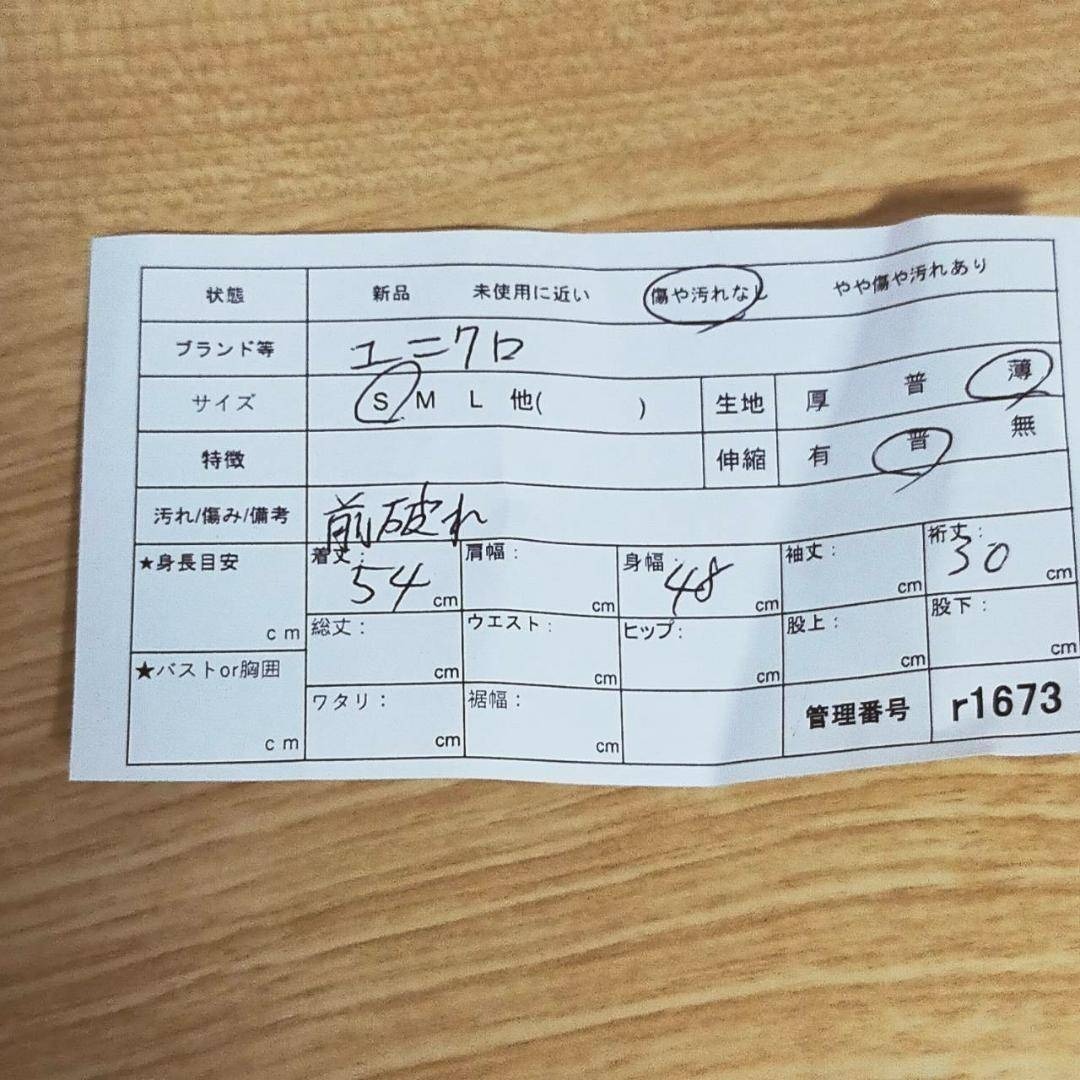 状態 新品 未使用に近い 傷や汚れなし やや傷や汚れあり
ブランド等 ユニクロ
サイズ S M L 他( ) 生地 厚 普 薄
特徴 伸縮 有 普 無
汚れ/傷み/備考 前破れ
★身長目安 cm 着丈: 54 cm 肩幅: cm 身幅: 48 cm 袖丈: cm 裄丈: 30 cm
総丈: cm ウエスト: cm ヒップ: cm 股上: cm 股下: cm
★バストor胸囲 cm ワタリ: cm 裾幅: cm 管理番号 r1673